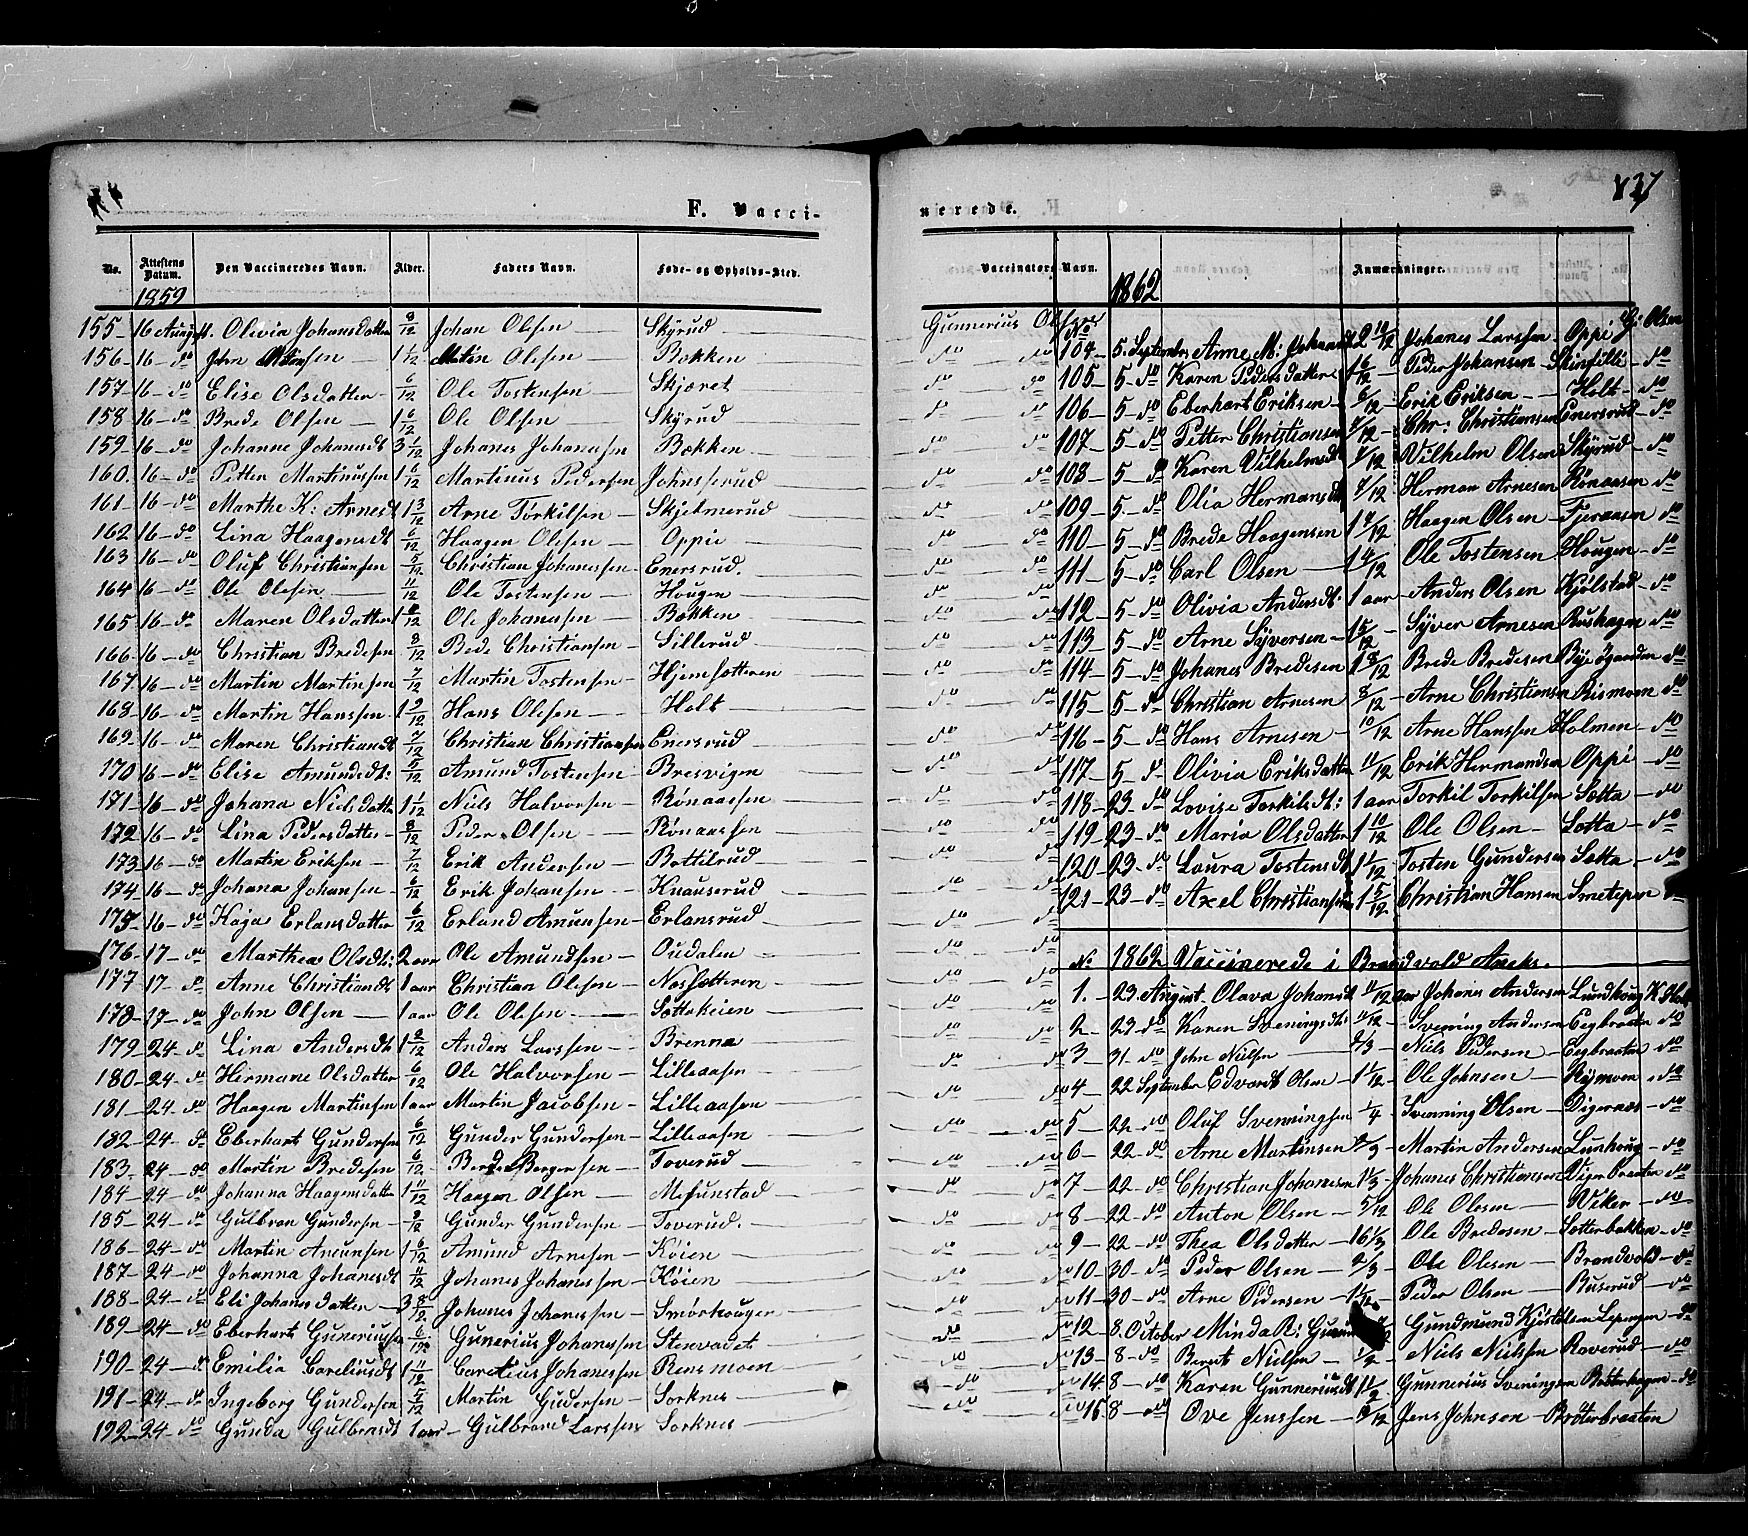 137
F. Vacci-
nerede.
No. Attestens Datum. Den Vaccineredes Navn. Alder. Faders Navn. Føde- og Opholds-Sted.
Vaccinators Navn. Anmærkninger.
1859
155 - 16 August. Olivia Johansdatter 8/12 Johan Olsen — Skyrud — Gunnerius Olsen
156 - 16 - do Olsen — 1 1/12 Martin Olsen — Bekken — do do
157 - 16 - do Elise Olsdatter — 6/12 Ole Tostensen — Skjæret — do do
158 16 - do Brede Olsen — 1 6/12 Ole Olsen — Skyrud — do do
159 - 16 - do Johanne Johansdt 3 1/12 Johanes Johanessen Bekken — do do
160. 16 - do Petter Martinussen 1 6/12 Martinus Pedersen Johnsserud — do do
161 - 16 - do Marthe K: Arnesdt 1 3/12 Arne Torkilsen — Skjelmerud — do do
162 16 - do Lina Haagensdt 6/12 Haagen Olesen — Oppie — do do
163 16 - do Oluf Christiansen 5/12 Christian Johanessen - Enersrud. — do do
164 16 - do Ole Olesen — 11/12 Ole Tostensen — Hougen — do do
165 16 - do Maren Olsdatter 1 8/12 Ole Johanessen — Bekken — do do
166 - 16 - do Christian Bredesen 8/12 Bede Christiansen — Lillerud — do do
167 16 - do Martin Martinsen 7/12 Martin Tostensen — Hjemsetteren — do do
168 - 16 - do Martin Hanssen - 1 9/12 Hans Olesen — Holt — do do
169 - 16 - do Maren Christiansdt 7/12 Christian Christiansen Enersrud — do do
170 16 - do Elise Amundsdt: 5/12 Amund Tostensen — Bresvigen — do do
171 - 16 - do Johana Nielsdatter 1 1/12 Niels Halvorsen — Rønaassen — do do
172 - 16 - do Lina Pedersdatter — 8/12 Peder Olsen — Rønaassen — do do
173 - 16 - do Martin Eriksen — 7/12 Erik Andersen — Bottilrud — do do
174 - 16 - do Johana Johansen — 6/12 Erik Johansen — Knauserud — do do
175 - 16 - do Kaja Erlansdatter 6/12 Erland Amunsen — Erlansrud — do do
176 - 17 - do Marthea Olsdt: 2 aar Ole Amundsen — Oudalen — do do
177 - 17 - do Anne Christiansdt 1 aar Christian Olesen — Nessetteren — do do
178 - 17 - do John Olsen — 1 aar Ole Olesen — Settekeien — do do
179 - 24 - do Lina Andersdt 1 8/12 Anders Larssen — Brenna — do do
180 - 24 - do Hermane Olsdatter 6/12 Ole Halvorsen — Lilleaasen — do do
181 - 24 - do Haagen Martinsen 1 aar Martin Jacobsen — Lilleaasen — do do
182 - 24 - do Eberhart Gundersen 6/12 Gunder Gundersen — Lilleaasen — do do
183 - 24 - do Martin Bredesen 6/12 Bergersen — Toverud — do do
184 - 24 - do Johanna Haagensdatter 1 11/12 Haagen Olsen — Mefunstad — do do
185 - 24 - do Gulbran Gundersen — 9/12 Gunder Gundersen — Toverud. — do do
186 - 24 - do Martin Amunsen 1 6/12 Amund Arnesen — Køien — do do
187 - 24 - do Johanna Johanesdt 11/12 Johanes Johanessen — Køien — do do
188 - 24 - do Eli Johanesdatter — 3 8/12 Johanes Johanessen — Smørhougen — do do
189 - 24 - do Eberhart Gunerinssen 6/12 Gunerius Johanessen Stenvadet — do do
190 - 24 - do Emilia Carelinsdt 1 11/12 Carelius Johanessen Rensmoen — do do
191 - 24 - do Ingeborg Gundersen 5/12 Martin Gudersen — Sorknes — do do
192 - 24 - do Gunda Gulbransdt 1 aar — Gulbrand Larssen Sorknes — do do
1862
104 - 5. September Arne M: 2 10/12 Johanes Larssen — Oppi G: Olsen
105 - 5 - do Karen Pedersdatter 1 6/12 Peder Johansen — do
106 - 5 - do Eberhart Eriksen — 6/12 Erik Eriksen — Holt — do
107 - 5 - do Petter Christiansen 7/12 Chr: Christiansen Enersrud — do
108 - 5 - do Karen Vilhelmsdt 7/12 Vilhelm Olsen Skyrud — do
109 - 5 - do Olia Hermansdt 7/12 Herman Arnesen Rønaasen do
110 - 5 - do Brede Haagensen 1 7/12 Haagen Olsen — Tjeraasen do
111 - 5 - do Carl Olsen — 1 4/12 Ole Tostensen Hougen — do
112 - 5 - do Olivia Andersdt: 1 aar — Anders Olsen Kjølstad — do
113 - 5 - do Arne Syversen — 1 5/12 Syver Arnesen Rushagen — do
114 - 5 - do Johanes Bredesen 1 8/12 Brede Bredesen do
115 - 5 - do Christian Arnesen 8/12 Arne Christiansen Rismoen do
116 - 5 - do Hans Arnesen 10/12 Arne Hanssen Holmen — do
117 - 5 - do Olivia Eriksdatter 11/12 Erik Hermandsen Oppi — do
118 - 23 - do Lovise Torkilsdt: 1 aar Torkil Torkilsen Sætta — do
119 - 23 - do Maria Olsdatter 1 10/12 Ole Olsen — Søtta — do
120 - 23 - do Laura Tostensdt 1 1/12 Tosten Gundersen Sætta — do
121 - 23 - do Axel Christiansen 1 5/12 Christian Hansen do
No 1862 Vaccinerede i Brandvold Aneks.
1. - 23. August. Olava Johansdt 11/12 aar Johanes Andersen Lundhoug
2 - 23 do Karen Sveningsdt: 11/12 — Svening Andersen Eegbraaten do
3 - 31 - do John Nilsen — Niels Pedersen — Eegbraaten do
4 - 22 September Edvardt Olsen — 1 1/12 Ole Johnsen — Rymoen — do
5 - 22 - do Oluf Svenningsen 1/4 — Svenning Olsen — Digernæs — do
6 - 22 - do Arne Martinsen — Martin Andersen Lunhoug — do
7 - 22 - do Christian Johanesen 1 1/3 — Johanes Christiansen do
8 - 22 - do Anton Olsen — 5/12 Ole Olesen — Viker — do
9 - 22 - do Thea Olsdatter — 16 1/3 Ole Bredesen — Sotterbakken — do
10 - 30 - do Peder Olsen — Ole Olsen — Brandvold — do
11 - 30 - do Arne Pedersen — 1 1/12 Peder Olsen — Buserud — do
12 - 8. October Minda R: Gudmund Kjøstelsen do
13 - 8 - do Bernt Nielsen — 1/2 — Niels Nielsen Roverud — do
14. 8 - do Karen Gunneriusdt 1 1/2 Gunnerius Sveningsen do
15 8 - do Ove Jenssen — 8/12 Jens Johnsen — Brøterbraaten